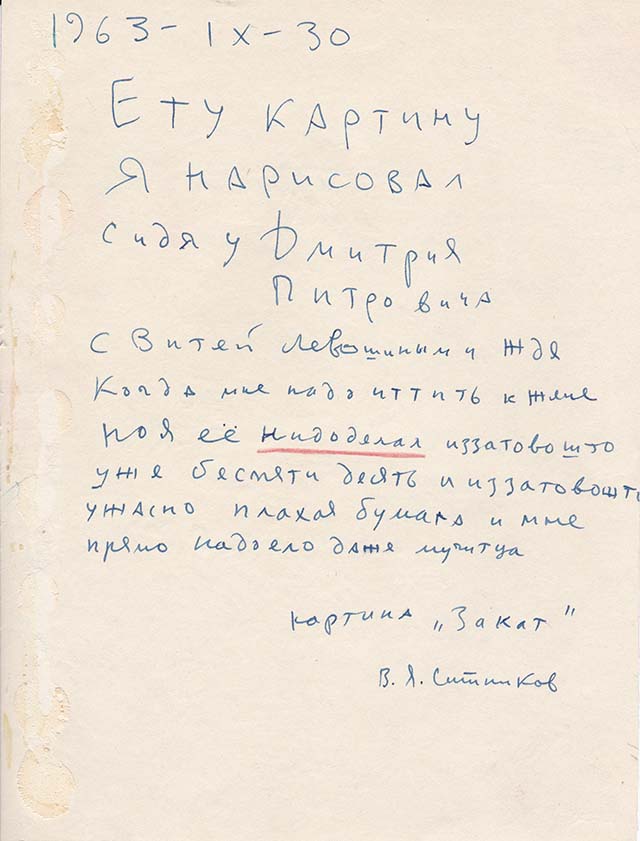 1963-IX-30
Ету картину
я нарисовал
сидя у Дмитрия
Питровича
с Витей Левошиным и ждя
когда мне надо иттить к жене
но я её нидоделал иззатовошто
уже беспяти десять и иззатовошто
ужасно плахая бумага и мне
прямо надоело даже мучитца
картина „Закат"
В. Я. Ситников